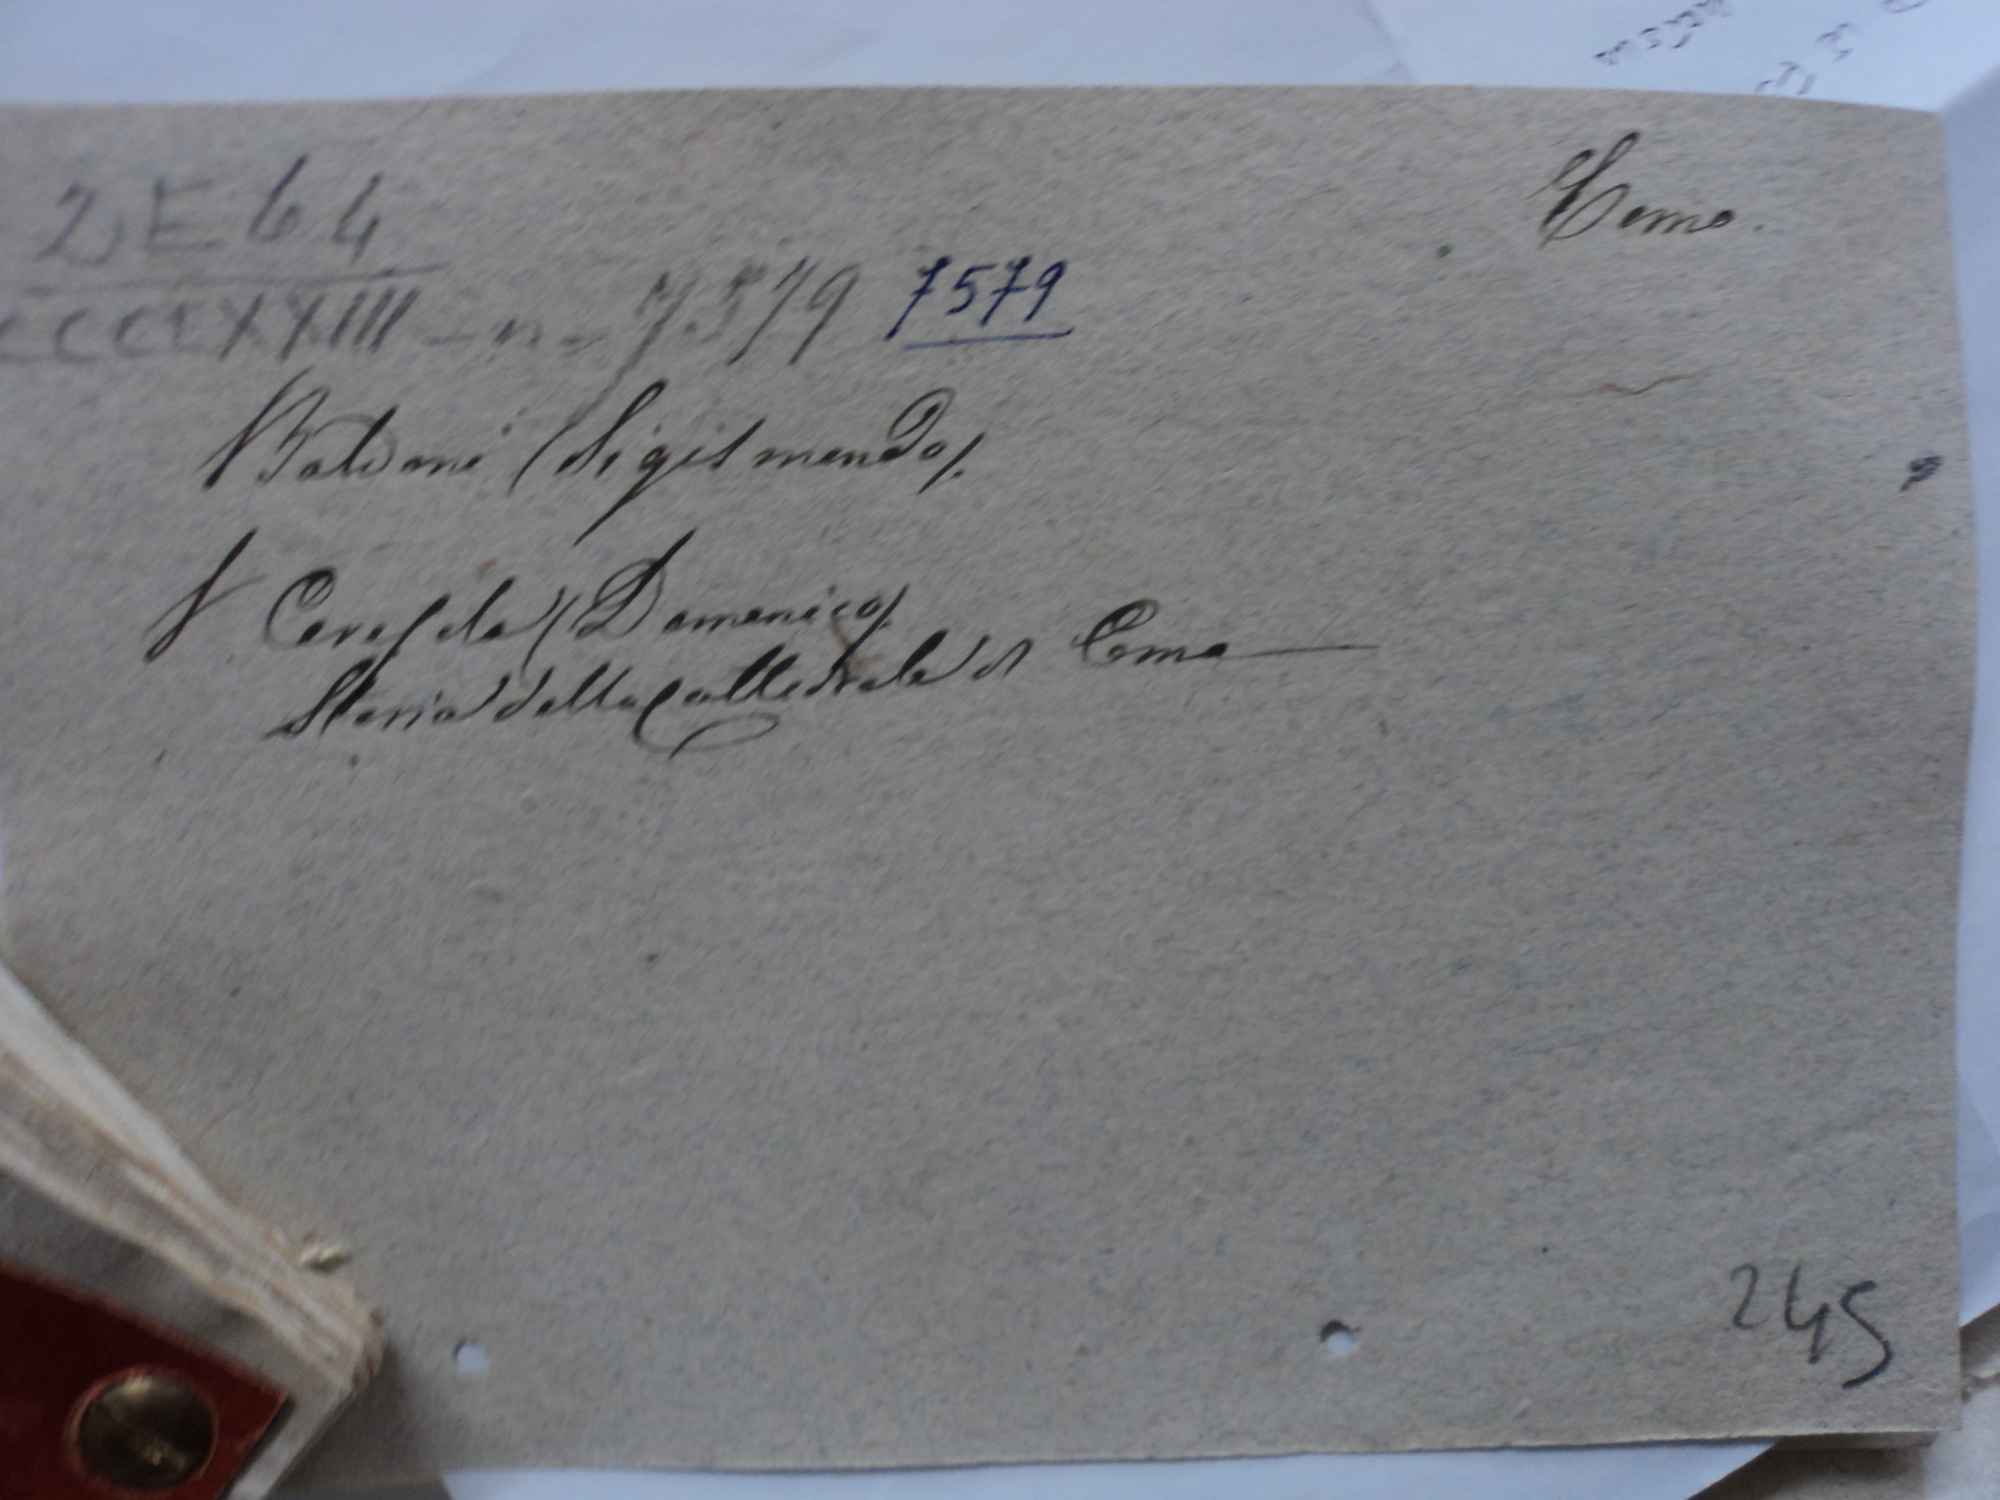 Como.
2 E 64
CCCCLXXIII - n - 7579 7579
Baldoni (Sigismondo).
Cereseda (Domenico).
Storia della Cattedrale di Como
245